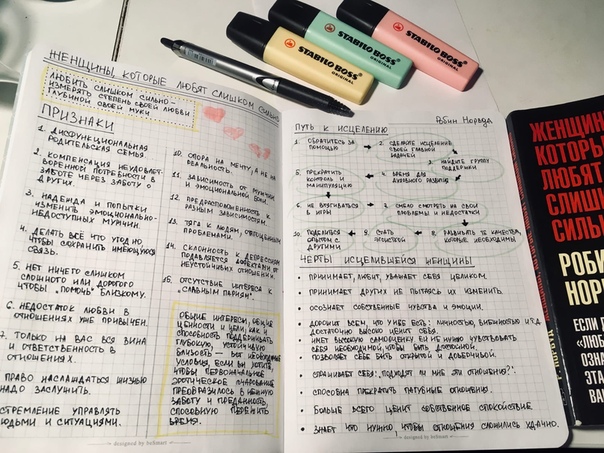 STABILO BOSS
ORIGINAL
STABILO BOSS
ORIGINAL
STABILO BOSS
ORIGINAL
ЖЕНЩИНЫ, КОТОРЫЕ ЛЮБЯТ СЛИШКОМ СИЛЬНО
ЛЮБИТЬ СЛИШКОМ СИЛЬНО -
ИЗМЕРЯТЬ СТЕПЕНЬ СВОЕЙ ЛЮБВИ
ГЛУБИНОЙ СВОЕЙ МУКИ
ПРИЗНАКИ
1. ДИСФУНКЦИОНАЛЬНАЯ
РОДИТЕЛЬСКАЯ СЕМЬЯ
2. КОМПЕНСАЦИЯ НЕУДОВЛЕТ-
ВОРЕННОЙ ПОТРЕБНОСТИ В
ЗАБОТЕ ЧЕРЕЗ ЗАБОТУ О
ДРУГИХ
3. НАДЕЖДА И ПОПЫТКИ
ИЗМЕНИТЬ ЭМОЦИОНАЛЬНО-
НЕДОСТУПНЫХ МУЖЧИН.
4. ДЕЛАТЬ ВСЁ ЧТО УГОДНО
ЧТОБЫ СОХРАНИТЬ ИМЕЮЩУЮСЯ
СВЯЗЬ.
5. НЕТ НИЧЕГО СЛИШКОМ
СЛОЖНОГО ИЛИ ДОРОГОГО
ЧТОБЫ "ПОМОЧЬ" БЛИЗКОМУ.
6. НЕДОСТАТОК ЛЮБВИ В
ОТНОШЕНИЯХ УЖЕ ПРИВЫЧЕН.
7. ТОЛЬКО НА ВАС ВСЯ ВИНА
И ОТВЕТСТВЕННОСТЬ В
ОТНОШЕНИЯХ.
ПРАВО НАСЛАЖДАТЬСЯ ЖИЗНЬЮ
НАДО ЗАСЛУЖИТЬ.
СТРЕМЛЕНИЕ УПРАВЛЯТЬ
ЛЮДЬМИ И СИТУАЦИЯМИ.
10. ОПОРА НА МЕЧТУ, А НЕ НА
РЕАЛЬНОСТЬ.
11. ЗАВИСИМОСТЬ ОТ МУЖЧИН
И ЭМОЦИОНАЛЬНОЙ БОЛИ.
12. ПРЕДРАСПОЛОЖЕННОСТЬ К
РАЗНЫМ ЗАВИСИМОСТЯМ.
13. ТЯГА К ЛЮДЯМ, ОТЯГОЩЕННЫМ
ПРОБЛЕМАМИ.
14. СКЛОННОСТЬ К ДЕПРЕССИИ
ПОДАВЛЯЕТСЯ АФФЕКТАМИ ОТ
НЕУСТОЙЧИВЫХ ОТНОШЕНИЙ.
15. ОТСУТСТВИЕ ИНТЕРЕСА К
"СЛАВНЫМ ПАРНЯМ"
ОБЩИЕ ИНТЕРЕСЫ, ОБЩИЕ
ЦЕННОСТИ И ЦЕЛИ, КАК И
СПОСОБНОСТЬ ПОДДЕРЖИВАТЬ
ГЛУБОКУЮ, УСТОЙЧИВУЮ
БЛИЗОСТЬ - ВОТ НЕОБХОДИМЫЕ
УСЛОВИЯ, ЕСЛИ ВЫ ХОТИТЕ,
ЧТОБЫ ПЕРВОНАЧАЛЬНОЕ
ЭРОТИЧЕСКОЕ ОЧАРОВАНИЕ
ПРЕОБРАЗИЛОСЬ В НЕЖНУЮ
ЗАБОТУ И ПРЕДАННОСТЬ,
СПОСОБНУЮ ПЕРЕЖИТЬ
ВРЕМЯ.
designed by bellmart
РОБИН НОРВУД
ПУТЬ К ИСЦЕЛЕНИЮ
1. ОБРАТИТЕСЬ ЗА
ПОМОЩЬЮ
2. СДЕЛАЙТЕ ИСЦЕЛЕНИЕ
СВОЕЙ ГЛАВНОЙ
ЗАДАЧЕЙ
3. НАЙДИТЕ ГРУППУ
ПОДДЕРЖКИ
5. ПРЕКРАТИТЕ
КОНТРОЛЬ И
МАНИПУЛЯЦИЮ
4. ВРЕМЯ ДЛЯ
ДУХОВНОГО РАЗВИТИЯ
6. НЕ ВТЯГИВАТЬСЯ
В ИГРЫ
7. СМЕЛО СМОТРЕТЬ НА СВОИ
ПРОБЛЕМЫ И НЕДОСТАТКИ
10. ПОДЕЛИТЬСЯ
ОПЫТОМ С
ДРУГИМИ
9. СТАТЬ
ЭГОИСТКОЙ
8. РАЗВИВАТЬ ТЕ КАЧЕСТВА,
КОТОРЫЕ НЕОБХОДИМЫ
ЧЕРТЫ ИСЦЕЛИВШЕЙСЯ ЖЕНЩИНЫ
• ПРИНИМАЕТ, ЛЮБИТ, УВАЖАЕТ СЕБЯ ЦЕЛИКОМ.
• ПРИНИМАЕТ ДРУГИХ НЕ ПЫТАЯСЬ ИХ ИЗМЕНИТЬ.
• ОСОЗНАЕТ СОБСТВЕННЫЕ ЧУВСТВА И ЭМОЦИИ.
• ДОРОЖИТ ВСЕМ, ЧТО У НЕЁ ЕСТЬ: ЛИЧНОСТЬЮ, ВНЕШНОСТЬЮ И Т.Д.
ДОСТАТОЧНО ВЫСОКО ЦЕНИТ СЕБЯ.
• ИМЕЕТ ВЫСОКУЮ САМООЦЕНКУ ЕЙ НЕ НУЖНО ЧУВСТВОВАТЬ
СЕБЯ НЕОБХОДИМОЙ, ЧТОБЫ БЫТЬ ДОСТОЙНОЙ
• ПОЗВОЛЯЕТ СЕБЕ БЫТЬ ОТКРЫТОЙ И ДОВЕРЧИВОЙ.
• СПРАШИВАЕТ СЕБЯ: "ПОДХОДЯТ ЛИ МНЕ ЭТИ ОТНОШЕНИЯ?".
• СПОСОБНА ПРЕКРАТИТЬ ПАГУБНЫЕ ОТНОШЕНИЯ.
• БОЛЬШЕ ВСЕГО ЦЕНИТ СОБСТВЕННОЕ СПОКОЙСТВИЕ.
• ЗНАЕТ ЧТО НУЖНО ЧТОБЫ ОТНОШЕНИЯ СЛОЖИЛИСЬ УДАЧНО.
designed by bellmart
ЖЕНЩИН
КОТОРЫ
ЛЮБЯТ
СЛИШК
СИЛЬ
РОБИ
НОР
ЕСЛИ
«ЛЮБ
ОЗНА
СТРА
ВА